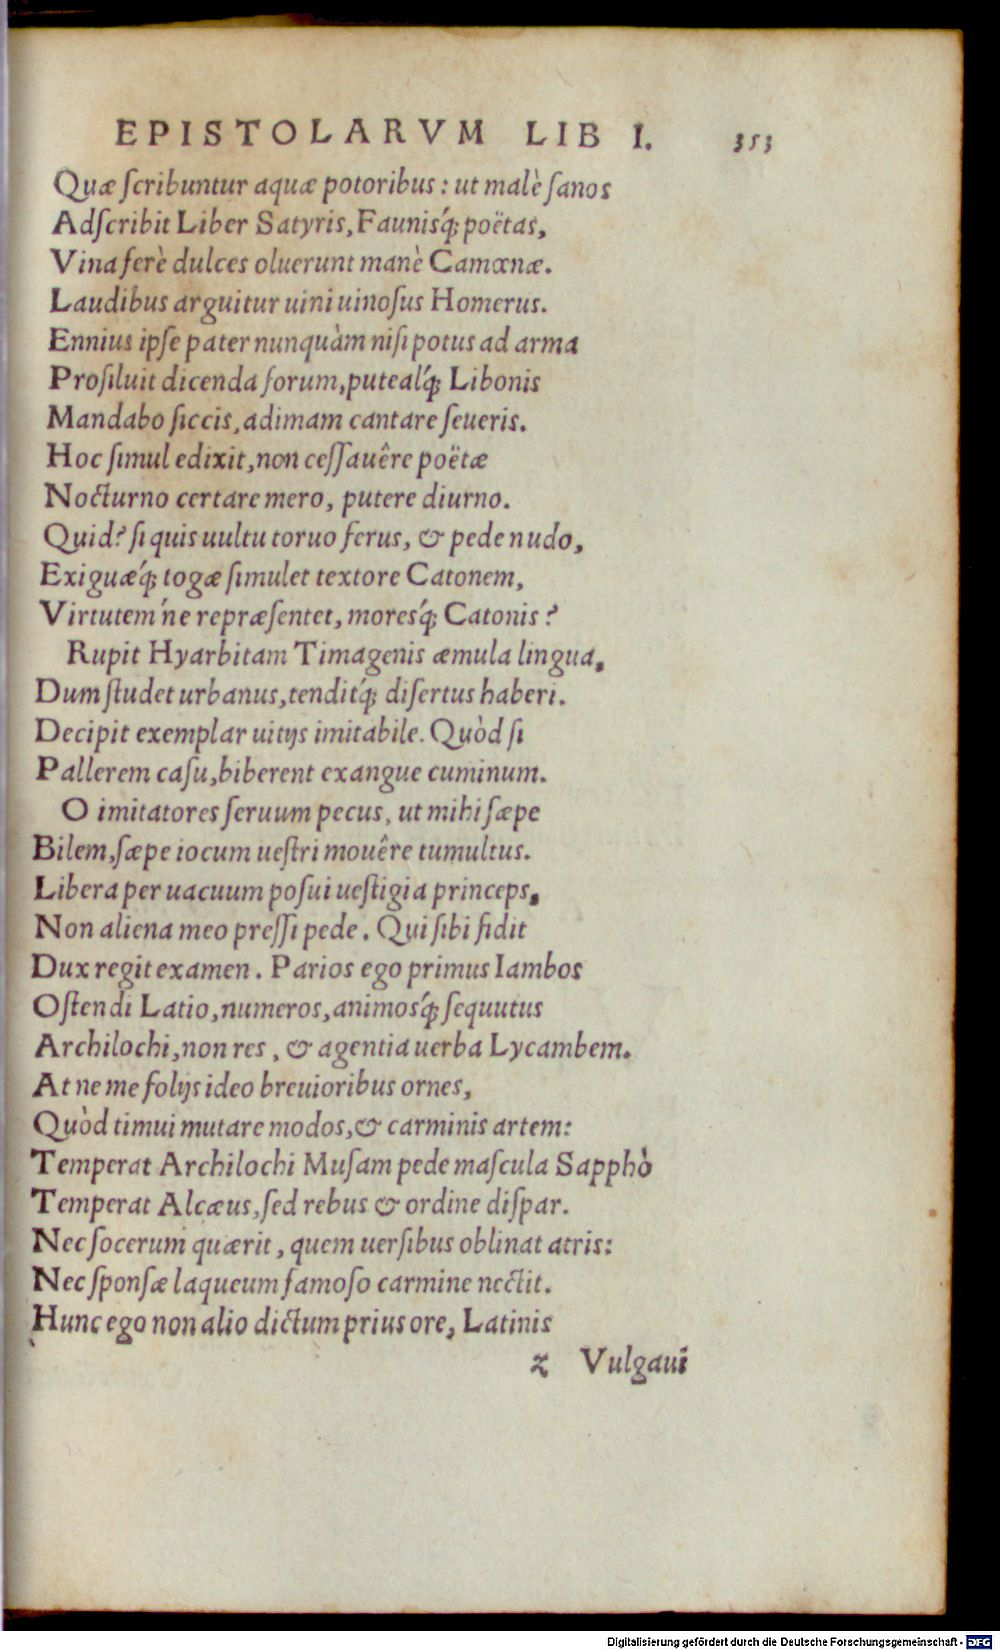 EPISTOLARVM LIB I. 353
Quæ ſcribuntur aquæ potoribus: ut malè ſanos
Adſcribit Liber Satyris, Faunisq́; poëtas,
Vina ferè dulces oluerunt manè Camœnæ.
Laudibus arguitur uini uinoſus Homerus.
Ennius ipſe pater nunquàm niſi potus ad arma
Proſiluit dicenda forum, putealq́; Libonis
Mandabo ſiccis, adimam cantare ſeueris.
Hoc ſimul edixit, non ceſſauêre poëtæ
Nocturno certare mero, putere diurno.
Quid? ſi quis uultu toruo ferus, & pede nudo,
Exiguæq́; togæ ſimulet textore Catonem,
Virtutem'ne repræſentet, moresq́; Catonis?
Rupit Hyarbitam Timagenis æmula lingua,
Dum ſtudet urbanus, tenditq́; diſertus haberi.
Decipit exemplar uitijs imitabile. Quòd ſi
Pallerem caſu, biberent exangue cuminum.
O imitatores ſeruum pecus, ut mihi ſæpe
Bilem, ſæpe iocum ueſtri mouêre tumultus.
Libera per uacuum poſui ueſtigia princeps,
Non aliena meo preſſi pede. Qui ſibi fidit
Dux regit examen. Parios ego primus Iambos
Oſtendi Latio, numeros, animosq́; ſequutus
Archilochi, non res, & agentia uerba Lycambem.
At ne me folijs ideo breuioribus ornes,
Quòd timui mutare modos, & carminis artem:
Temperat Archilochi Muſam pede maſcula Sapphò
Temperat Alcæus, ſed rebus & ordine diſpar.
Nec ſocerum quærit, quem uerſibus oblinat atris:
Nec ſponſæ laqueum famoſo carmine nectit.
Hunc ego non alio dictum prius ore, Latinis
z Vulgaui
Digitalisierung gefördert durch die Deutsche Forschungsgemeinschaft - DFG